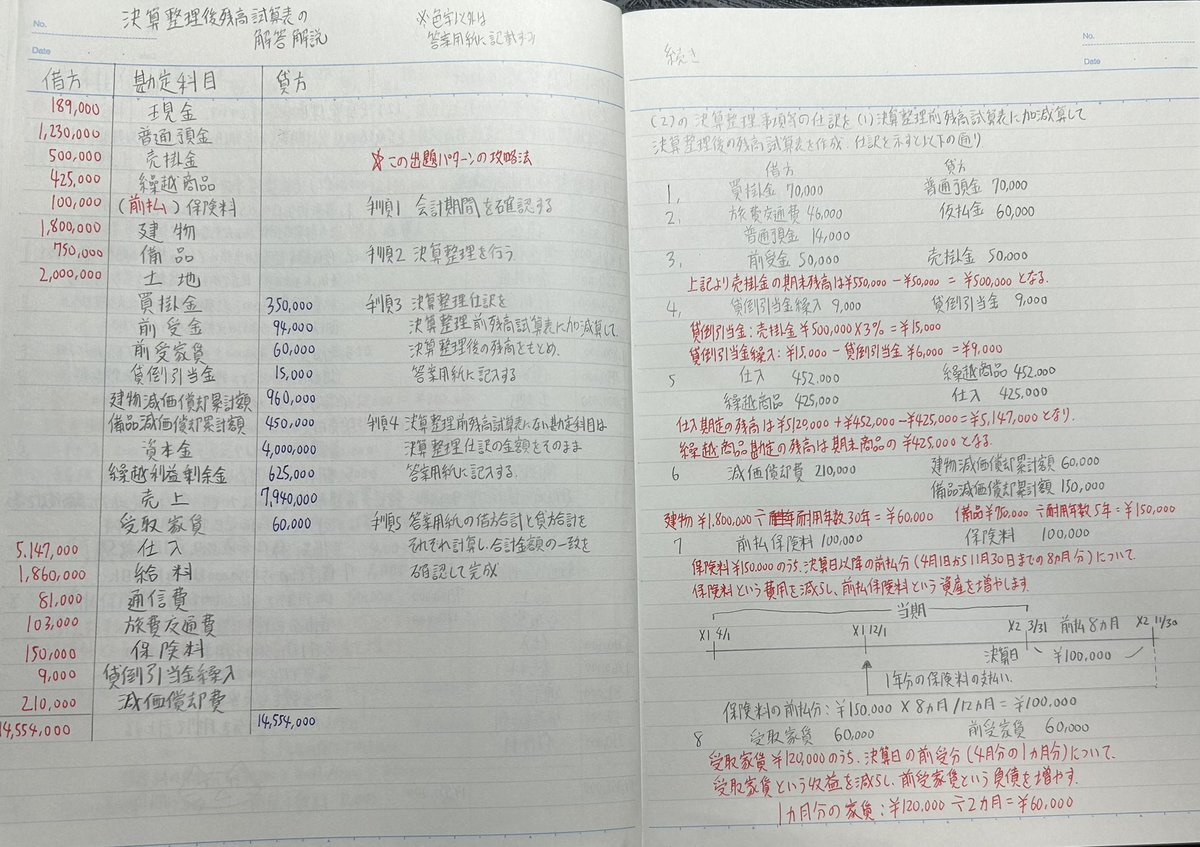 No.
Date
決算整理後残高試算表の
解答解説
※色字以外は
答案用紙に記載する
借方 勘定科目 貸方
189,000 現金
1,230,000 普通預金
500,000 売掛金
425,000 繰越商品
100,000 (前払)保険料
1,800,000 建物
750,000 備品
2,000,000 土地
買掛金 350,000
前受金 94,000
前受家賃 60,000
貸倒引当金 15,000
建物減価償却累計額 960,000
備品減価償却累計額 450,000
資本金 4,000,000
繰越利益剰余金 625,000
売上 7,940,000
受取家賃 60,000
5,147,000 仕入
1,860,000 給料
81,000 通信費
103,000 旅費交通費
150,000 保険料
9,000 貸倒引当金繰入
210,000 減価償却費
14,554,000 14,554,000
☆この出題パターンの攻略法
手順1 会計期間を確認する
手順2 決算整理を行う
手順3 決算整理仕訳を
決算整理前残高試算表に加減算して
決算整理後の残高をもとめ、
答案用紙に記入する
手順4 決算整理前残高試算表にない勘定科目は
決算整理仕訳の金額をそのまま
答案用紙に記入する.
手順5 答案用紙の借方合計と貸方合計を
それぞれ計算し、合計金額の一致を
確認して完成
No.
Date
続き
(2)の決算整理事項等の仕訳を(1)決算整理前残高試算表に加減算して
決算整理後の残高試算表を作成. 仕訳を示すと以下の通り
借方 貸方
1, 買掛金 70,000 普通預金 70,000
2, 旅費交通費 46,000 仮払金 60,000
普通預金 14,000
3, 前受金 50,000 売掛金 50,000
上記より売掛金の期末残高は¥550,000-¥50,000=¥500,000となる.
4, 貸倒引当金繰入 9,000 貸倒引当金 9,000
貸倒引当金:売掛金¥500,000×3%=¥15,000
貸倒引当金繰入:¥15,000-貸倒引当金¥6,000=¥9,000
5 仕入 452.000 繰越商品 452.000
繰越商品 425,000 仕入 425,000
仕入勘定の残高は¥5120,000+¥452,000-¥425,000=¥5,147,000となり.
繰越商品勘定の残高は期末商品の¥425,000となる.
6 減価償却費 210,000 建物減価償却累計額 60,000
備品減価償却累計額 150,000
建物¥1,800,000÷耐用年数30年=¥60,000 備品¥750,000÷耐用年数5年=¥150,000
7 前払保険料 100,000 保険料 100,000
保険料¥150,000のうち、決算日以降の前払分(4月1日から11月30日までの8カ月分)について
保険料という費用を減らし、前払保険料という資産を増やします.
当期
X1 4/1 X1 12/1 X2 3/31 前払8カ月 X2 11/30
決算日 ¥100,000
1年分の保険料の支払い.
保険料の前払分:¥150.000×8カ月/12カ月=¥100,000
8 受取家賃 60,000 前受家賃 60,000
受取家賃¥120,000のうち、決算日の前受分(4月分の1カ月分)について.
受取家賃という収益を減らし、前受家賃という負債を増やす.
1カ月分の家賃:¥120,000÷2カ月=¥60,000